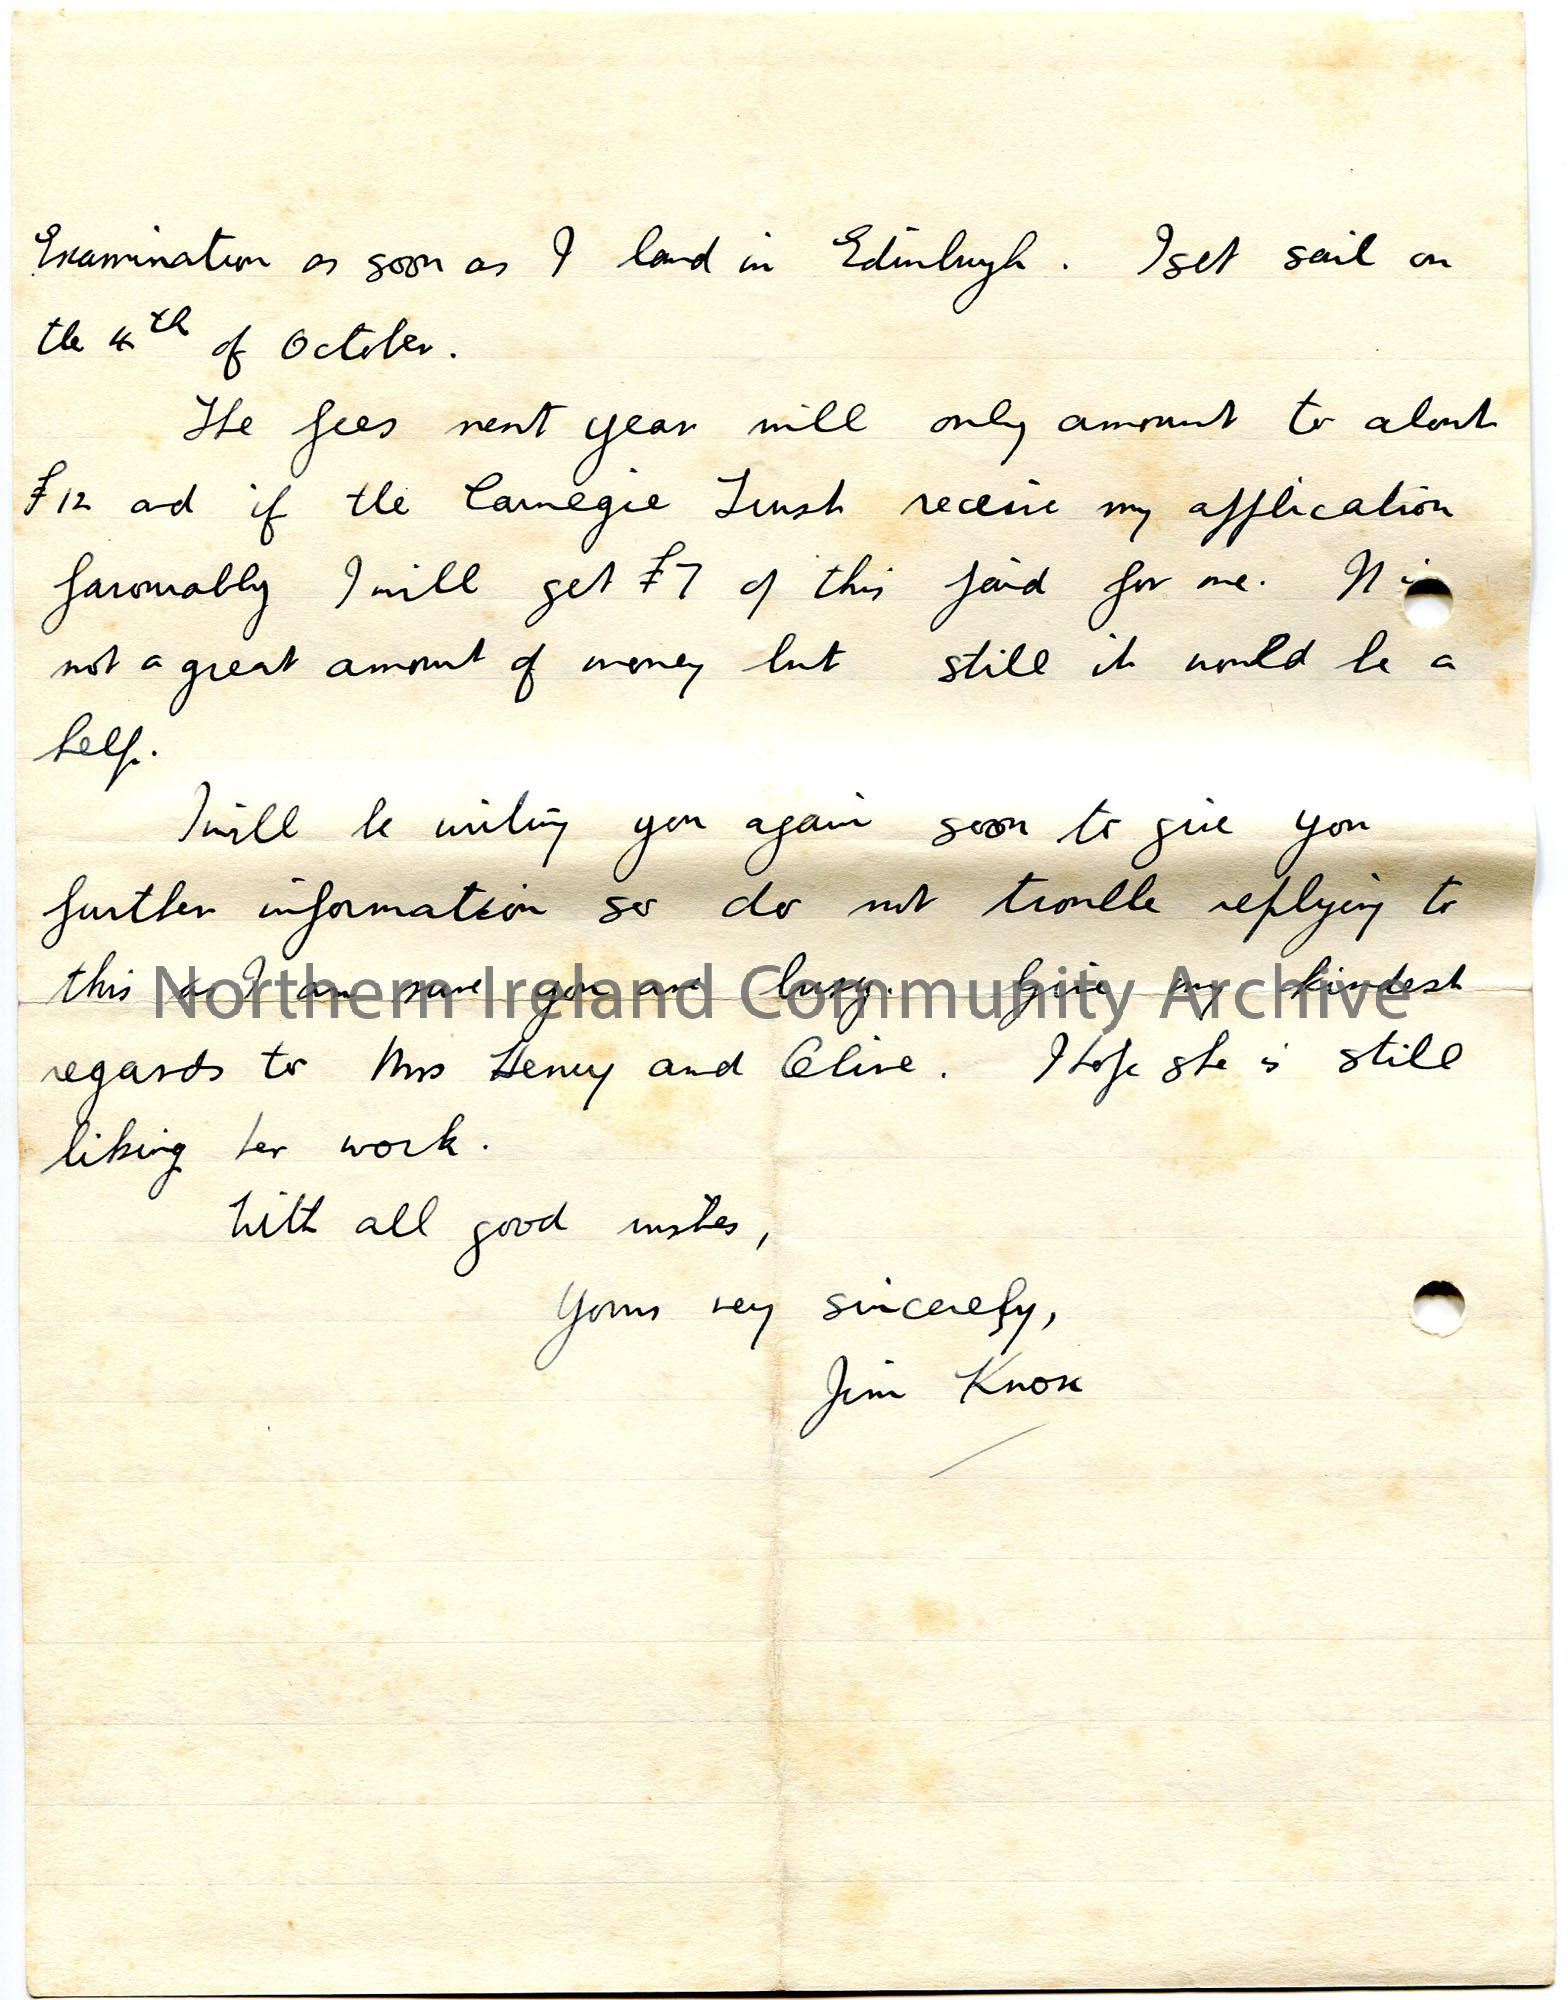 Examination as soon as I land in Edinburgh. I set sail on
the 4th of October.
The fees next year will only amount to about
£12 and if the Carnegie Trust receive my application
favourably I will get £7 of this paid for me. It is
not a great amount of money but still it would be a
help.
I will be writing you again soon to give you
further information so do not trouble replying to
this as I am sure you are busy. Give my kindest
Northern Ireland Community Archive
regards to Mrs Henry and Olive. I hope she is still
liking her work.
With all good wishes,
Yours very sincerely,
Jim Knox